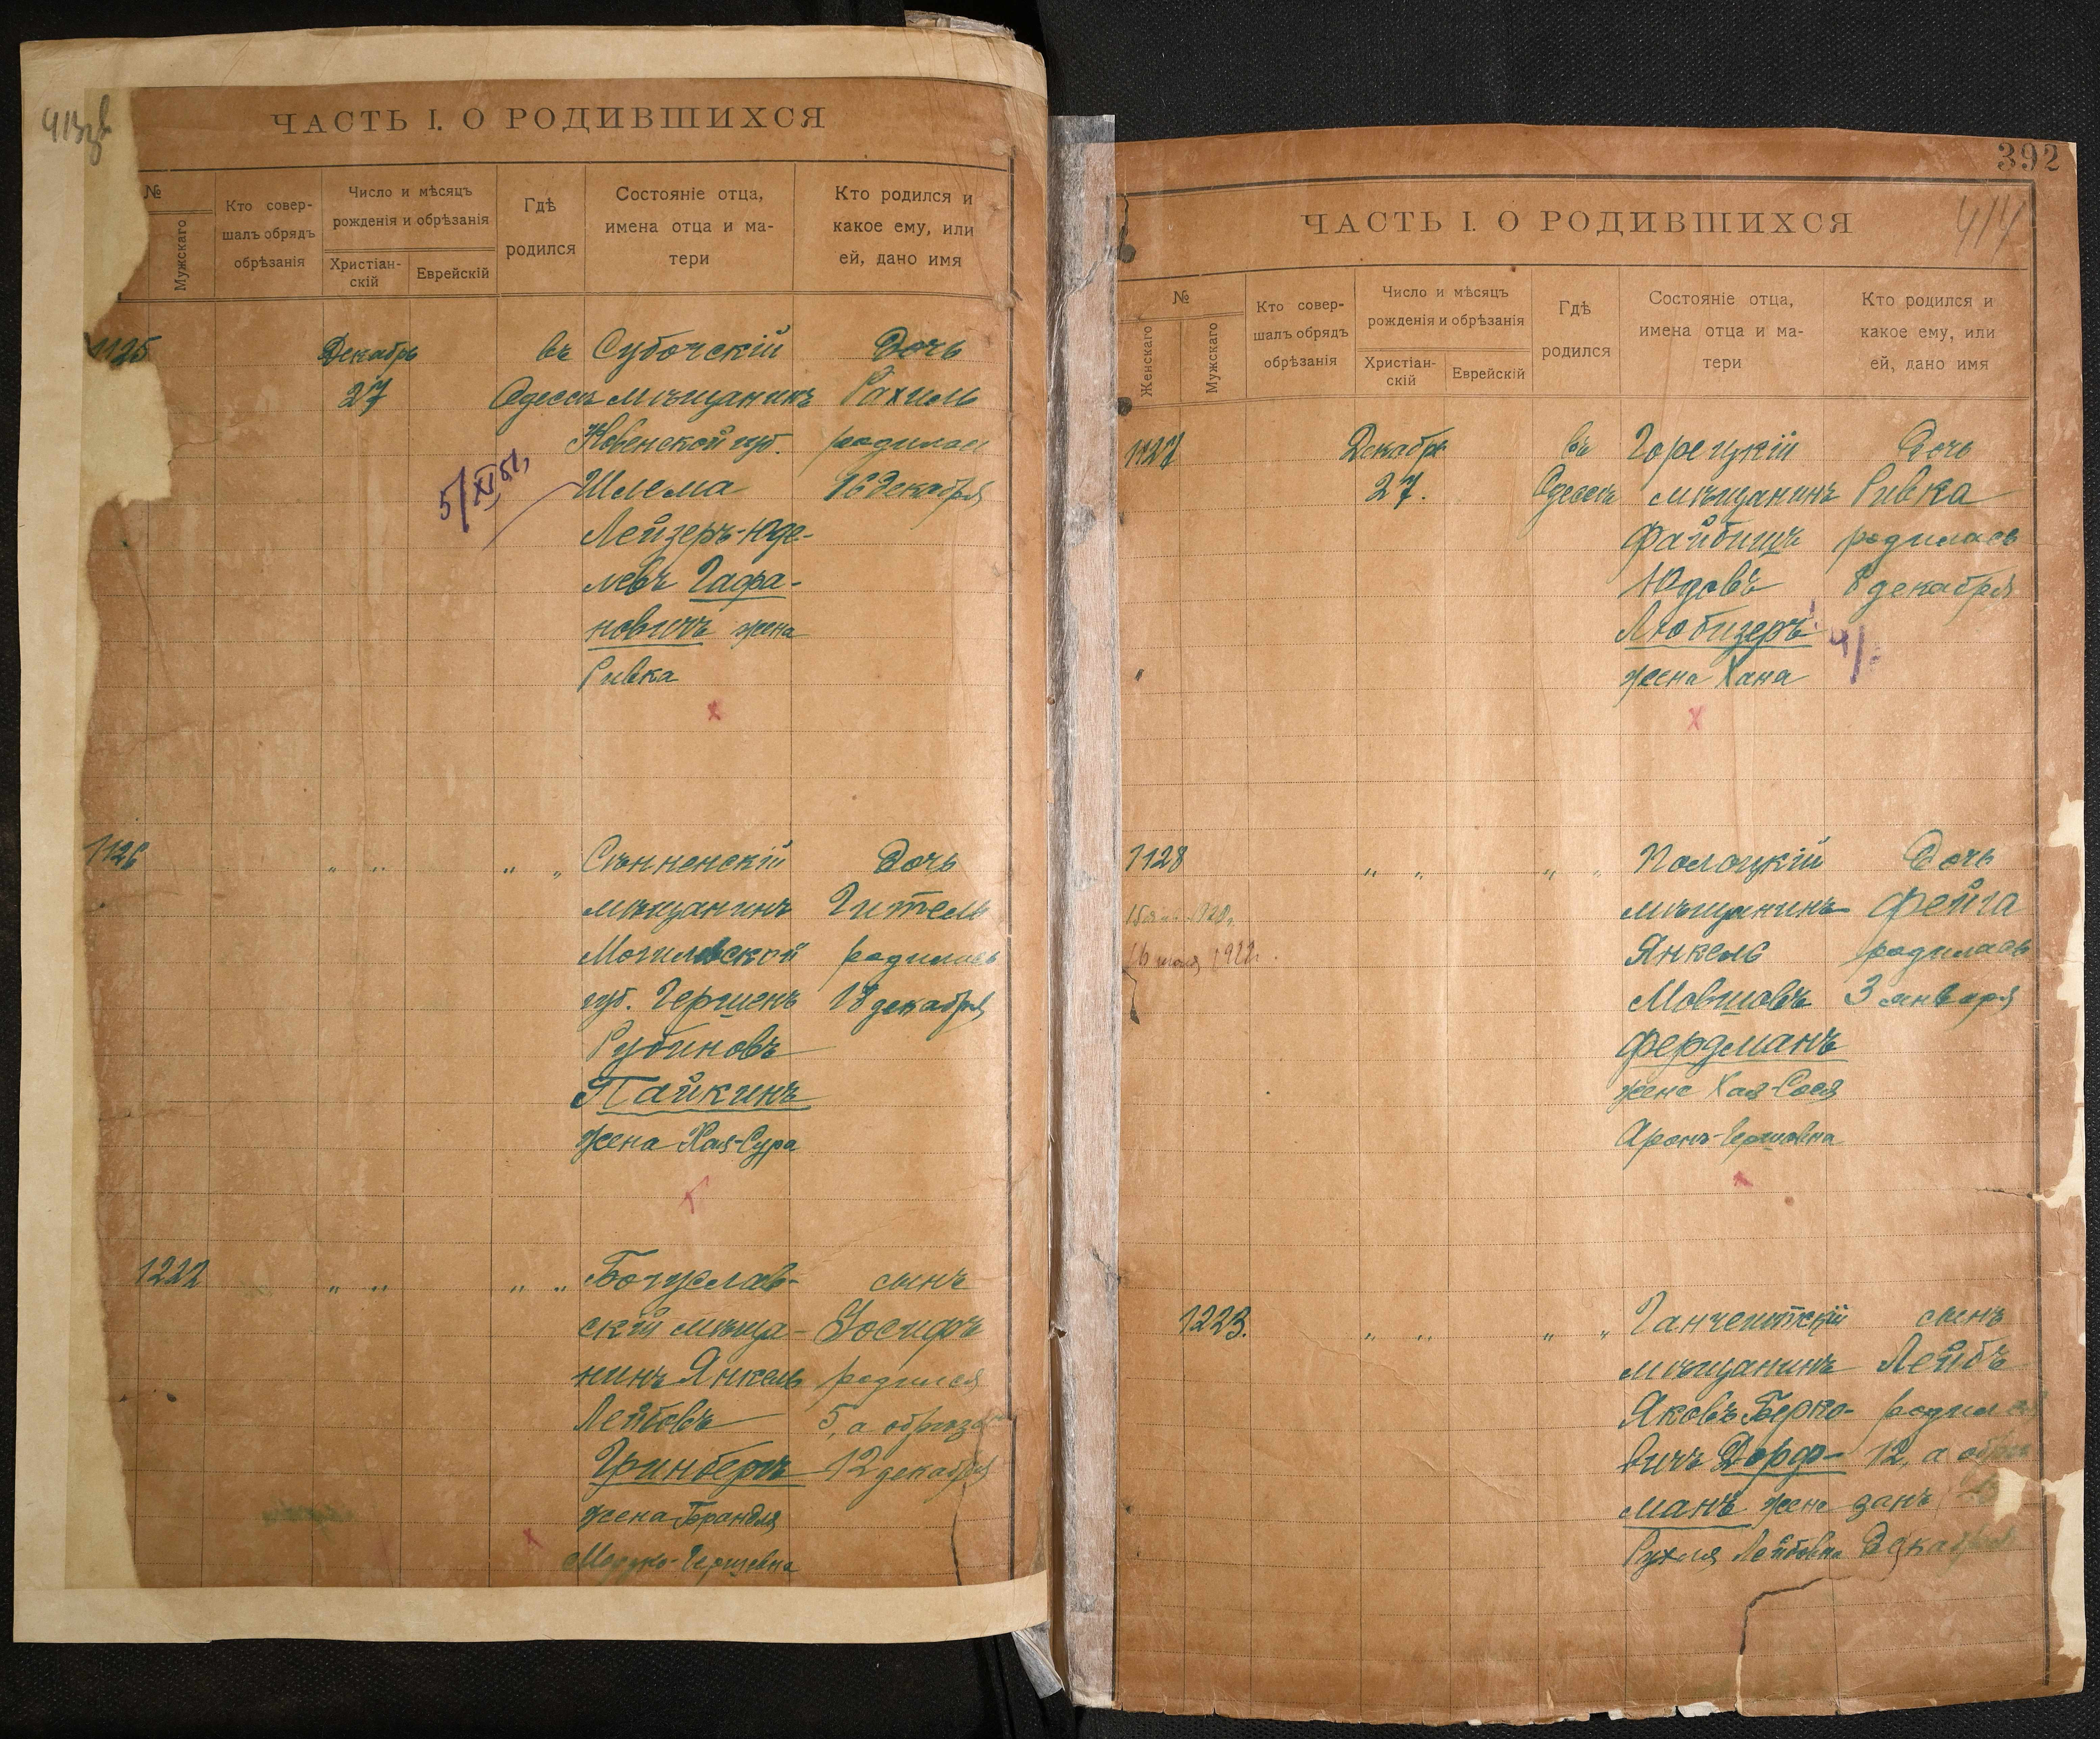 ЧАСТЬ I. О РОДИВШИХСЯ
№
Мужскаго
Кто совер-
шалъ обрядъ
обрѣзанія
Число и мѣсяцъ
рожденія и обрѣзанія
Христіан-
скій
Еврейскій
Гдѣ
родился
Состояніе отца,
имена отца и ма-
тери
Кто родился и
какое ему, или
ей, дано имя
1125 Декабрь въ Субочскій Дочь
27 Одессѣ мѣщанинъ Рахиль
Ковенской губ. родилась
5/XI 51 Шлема 16 декабря
Лейзеръ-Юде-
левъ Гафа-
новичъ жена
Ривка
1126 „ „ „ „ Сѣнненскій Дочь
мѣщанинъ Гитель
Могилевской родилась
губ. Гершенъ 18 декабря
Рубиновъ
Пайкинъ
жена Хая-Сура
1222 „ „ „ „ Богуслав- сынъ
скій мѣща- Іосифъ
нинъ Янкель родился
Лейбовъ 5, а обрѣзанъ
Гринбергъ 12 декабря
жена Брандля
Мордко-Гершевна
392
414
ЧАСТЬ I. О РОДИВШИХСЯ
№
Женскаго
Мужскаго
Кто совер-
шалъ обрядъ
обрѣзанія
Число и мѣсяцъ
рожденія и обрѣзанія
Христіан-
скій
Еврейскій
Гдѣ
родился
Состояніе отца,
имена отца и ма-
тери
Кто родился и
какое ему, или
ей, дано имя
1127 Декабрь въ Горецкій Дочь
27. Одессѣ мѣщанинъ Ривка
Файбишъ родилась
Юдовъ 8 декабря
Любизеръ
жена Хана
1128 „ „ „ „ Полоцкій Дочь
мѣщанинъ Фейга
Янкель родилась
Мовшовъ 3 января
Фердманъ
жена Хая-Сося
Аронъ-Гершовна
1223. „ „ „ „ Ганчештскій сынъ
мѣщанинъ Лейбъ
Яковъ Берко- родился
вичъ Дорф- 12, а обрѣ
манъ жена занъ
Рухля Лейбовна Декабря